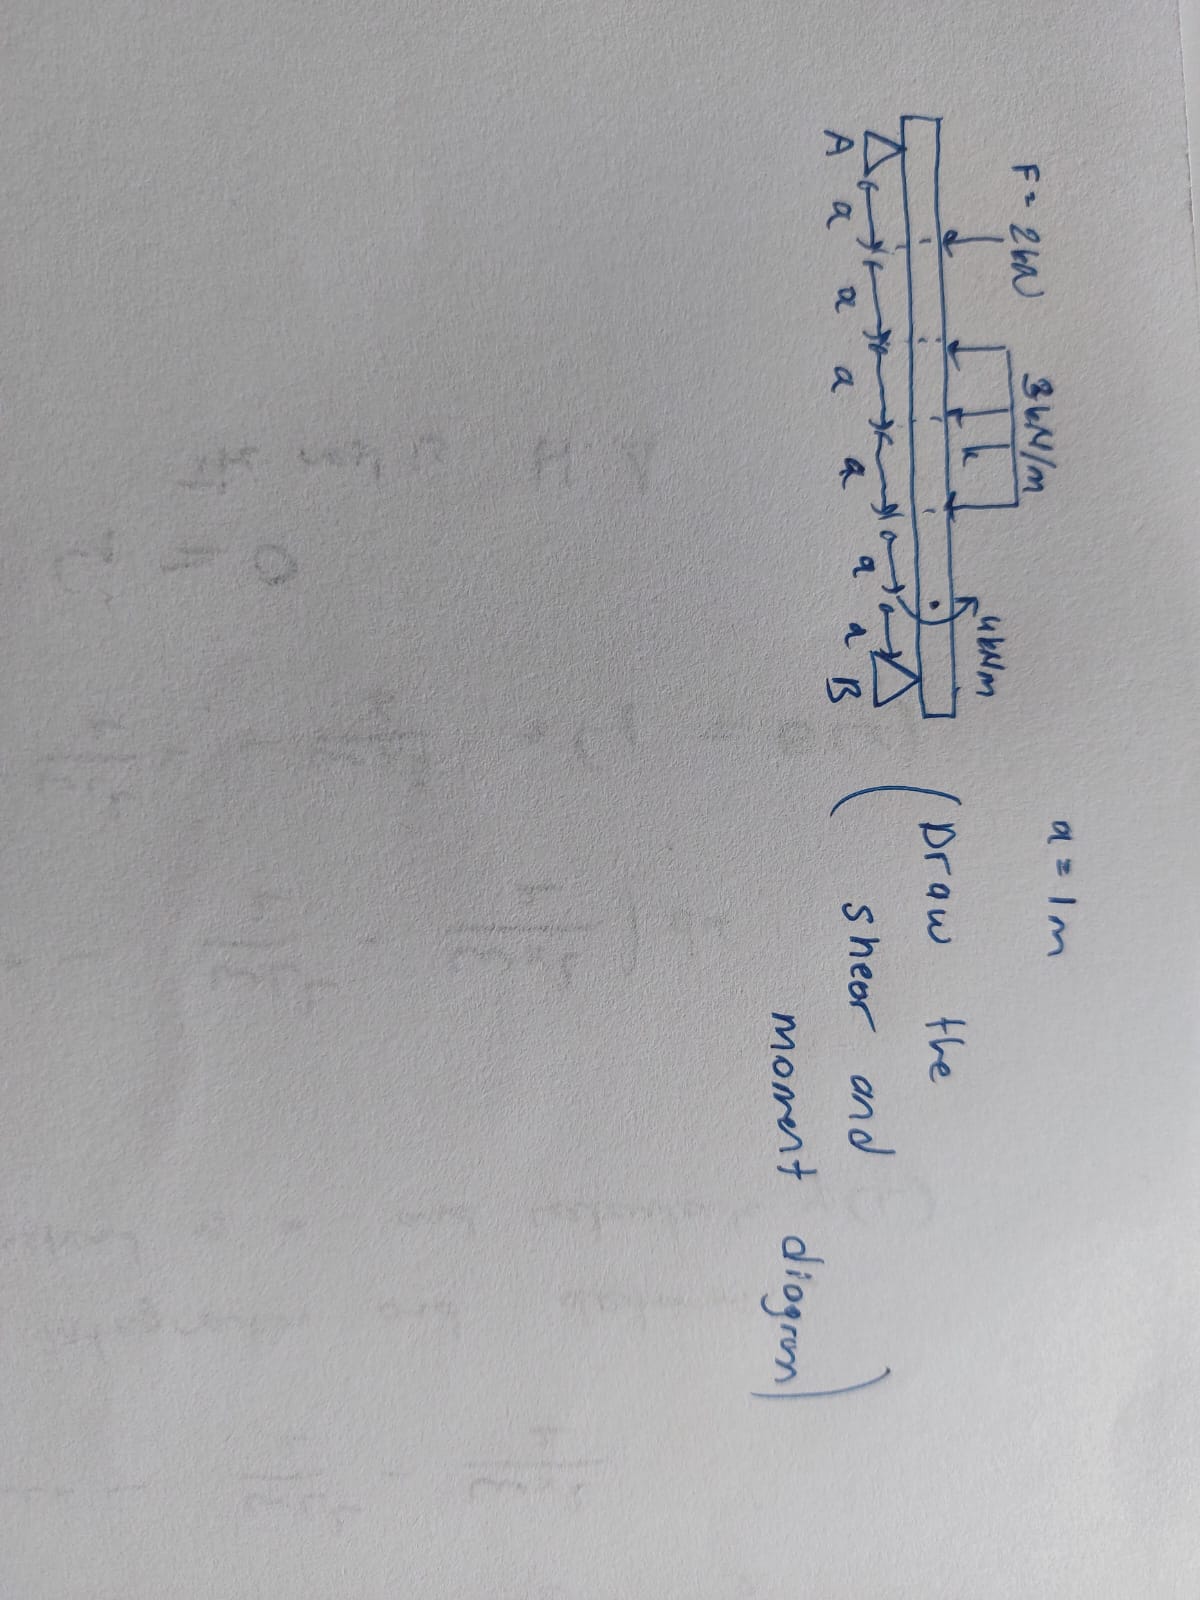 a = 1m
F = 2kN 3kN/m 4kNm
k
A a a a a a a B
(Draw the
shear and
moment diogram)